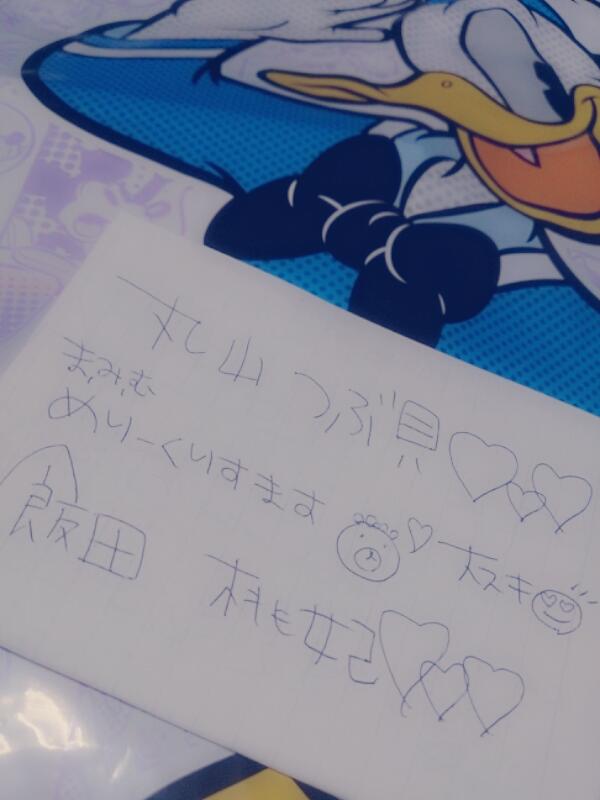 丸山つぶ貝♡♡♡
まみむ
めりーくりすます♡大スキ
飯田 桃妃♡♡♡